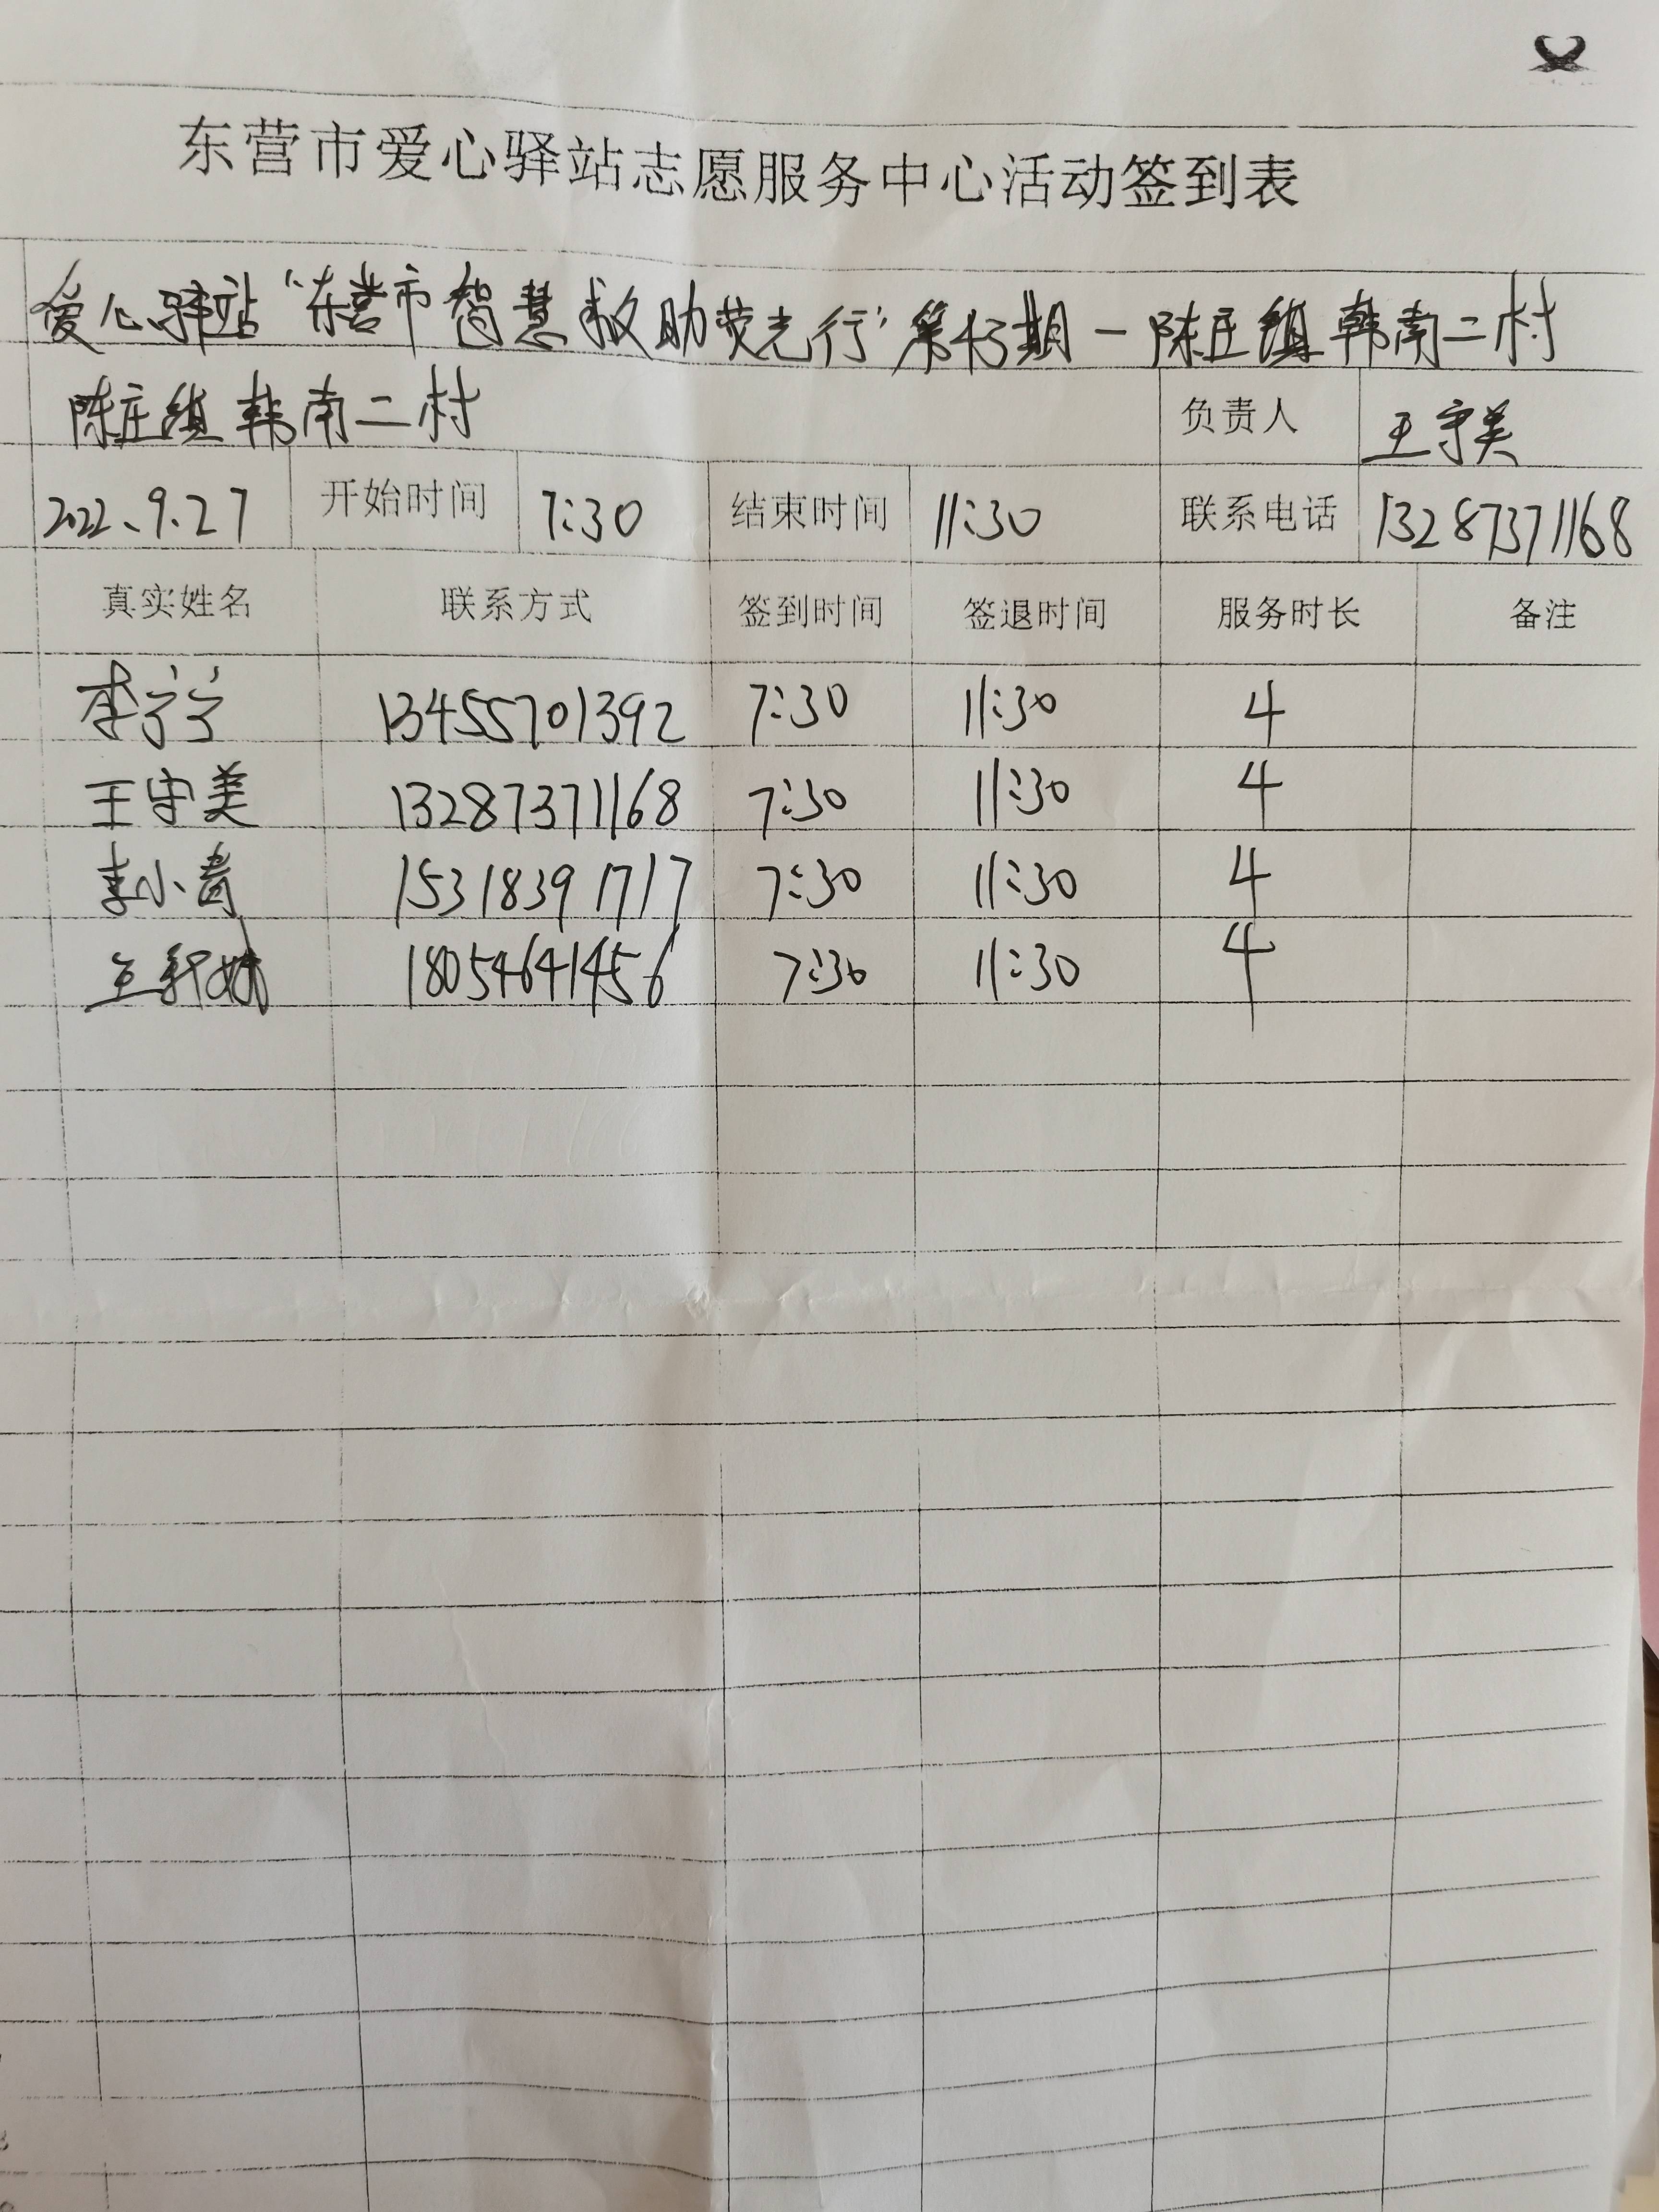 东营市爱心驿站志愿服务中心活动签到表
爱心驿站“东营市智慧救助荧光行”第43期—陈庄镇韩南二村
陈庄镇韩南二村 负责人 王守美
2022、9.27 开始时间 7:30 结束时间 11:30 联系电话 13287371168
真实姓名 联系方式 签到时间 签退时间 服务时长 备注
李宁宁 13455701392 7:30 11:30 4
王守美 13287371168 7:30 11:30 4
李小青 15318391717 7:30 11:30 4
18054641456 7:30 11:30 4